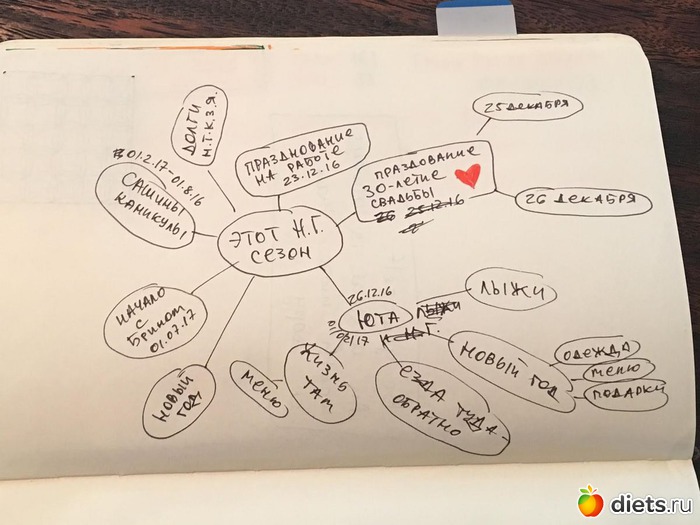 ДОЛГИ
Н.Т.К.З.Я.
ПРАЗДНОВАНИЕ
НА РАБОТЕ
23.12.16
ПРАЗДОВАНИЕ
30-ЛЕТИЕ
СВАДЬБЫ
25.12.16
25 ДЕКАБРЯ
26 ДЕКАБРЯ
01.2.17-01.8.16
САШИНЫ
КАНИКУЛЫ
ЭТОТ Н.Г.
СЕЗОН
НАЧАЛО
С
01.07.17
НОВЫЙ
ГОД
26.12.16
ЮТА
ЛЫЖИ
И Н.Г.
ЛЫЖИ
НОВЫЙ ГОД
ОДЕЖДА
МЕНЮ
ПОДАРКИ
ЕЗДА ТУДА-
ОБРАТНО
ЖИЗНЬ
ТАМ
МЕНЮ
diets.ru